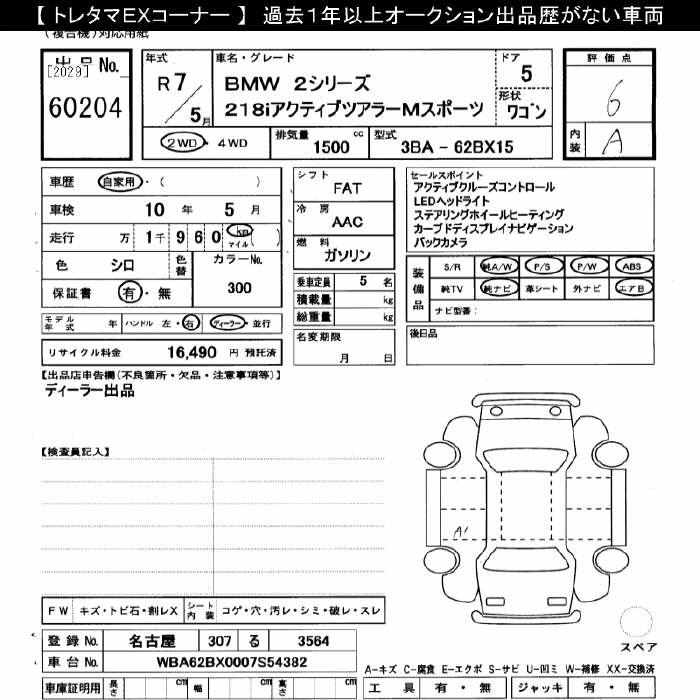 【 トレタマEXコーナー 】 過去１年以上オークション出品歴がない車両
(複合機)対応用紙
出品No.
[2029]
60204
年式
R 7/5月
車名・グレード
BMW 2シリーズ
218iアクティブツアラーMスポーツ
ドア
5
形状
ワゴン
評価点
6
内装
A
2WD・4WD
排気量
1500 cc
型式
3BA - 62BX15
車歴 自家用・( )
車検 10 年 5 月
走行 万 1千 9 6 0 km マイル ( )
色 シロ
色替
カラーNo.
300
保証書 有・無
モデル年式 年
ハンドル 左・右
ディーラー・並行
リサイクル料金 16,490 円 預託済
シフト
FAT
冷房
AAC
燃料
ガソリン
乗車定員 5 名
積載量 kg
総重量 kg
名変期限
月 日
セールスポイント
アクティブクルーズコントロール
LEDヘッドライト
ステアリングホイールヒーティング
カーブドディスプレイナビゲーション
バックカメラ
装備品
S/R 純A/W P/S P/W ABS
純TV 純ナビ 革シート 外ナビ エアB
ナビ型番:
後日品
【出品店申告欄(不良箇所・欠品・注意事項等)】
ディーラー出品
【検査員記入】
A1
FW キズ・トビ石・割レX
シート内装 コゲ・穴・汚レ・シミ・破レ・スレ
登録No. 名古屋 307 る 3564
車台No. WBA62BX0007S54382
車庫証明用 長さ cm 幅 cm 高さ cm
スペア
A-キズ C-腐食 E-エクボ S-サビ U-凹ミ W-補修 XX-交換済
工具 有・無 ジャッキ 有・無